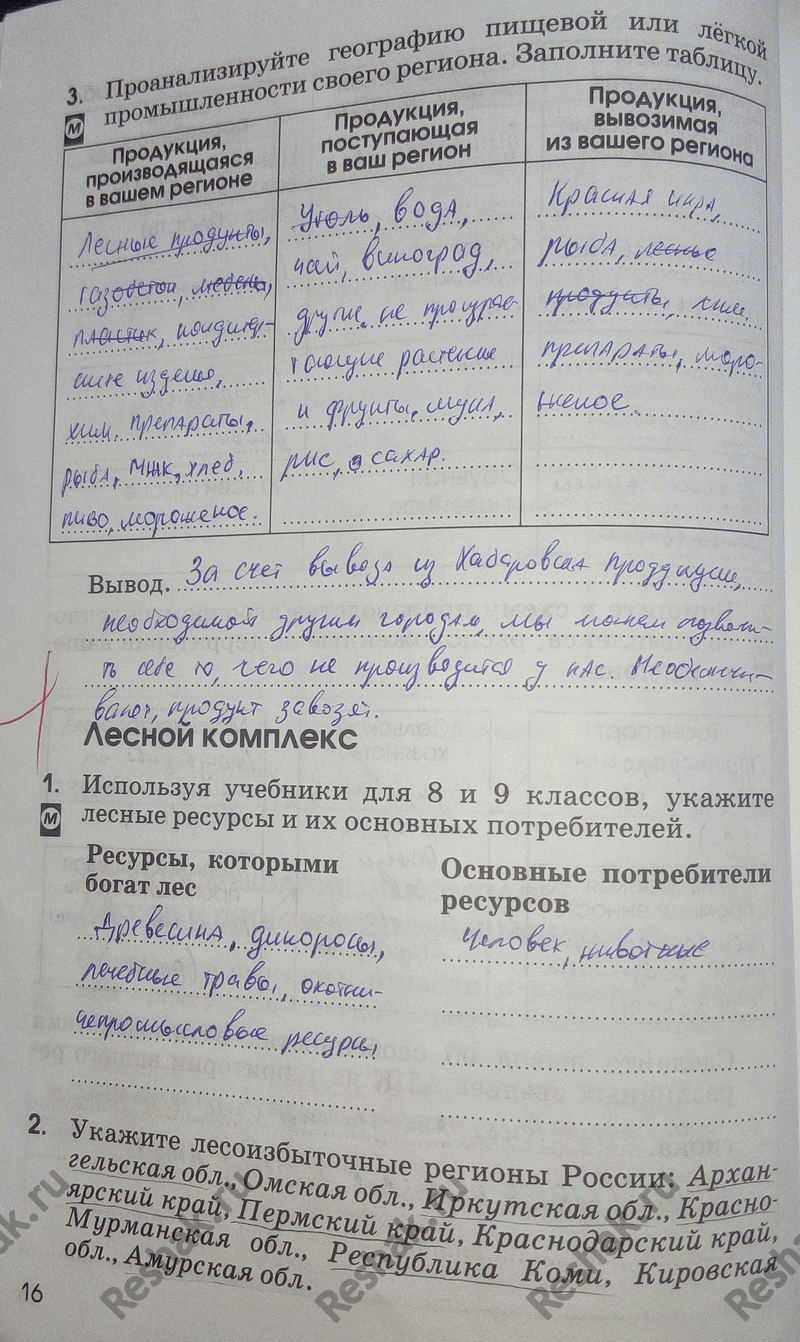 3. Проанализируйте географию пищевой или лёгкой
промышленности своего региона. Заполните таблицу.
М
Продукция,
производящаяся
в вашем регионе
Продукция,
поступающая
в ваш регион
Продукция,
вывозимая
из вашего региона
Лесные продукты,
газосетои, мебель,
пластик, кондитер-
ские изделия,
хим. препараты,
рыба, МЖК, хлеб,
пиво, мороженое.
Уголь, вода,
чай, виноград,
другие, не произрас-
тающие растение
и фрукты, мука,
рис, сахар.
Красная икра,
рыба, лесные
продукты, хим.
препараты, моро-
женое.
Вывод. За счет вывоза из Хабаровска продукции,
необходимой другим городам, мы можем позволи-
ть себе то, чего не производится у нас.
вают, продукт завозят.
Лесной комплекс
1. Используя учебники для 8 и 9 классов, укажите
М лесные ресурсы и их основных потребителей.
Ресурсы, которыми
богат лес
Древесина, дикоросы,
лечебные травы, охотни-
чепромысловые ресурсы
Основные потребители
ресурсов
Человек, животные
2. Укажите лесоизбыточные регионы России: Архан-
гельская обл., Омская обл., Иркутская обл., Красно-
ярский край, Пермский край, Краснодарский край,
Мурманская обл., Республика Коми, Кировская
обл., Амурская обл.
16
Reshak.ru
Reshak.ru
Reshak.ru